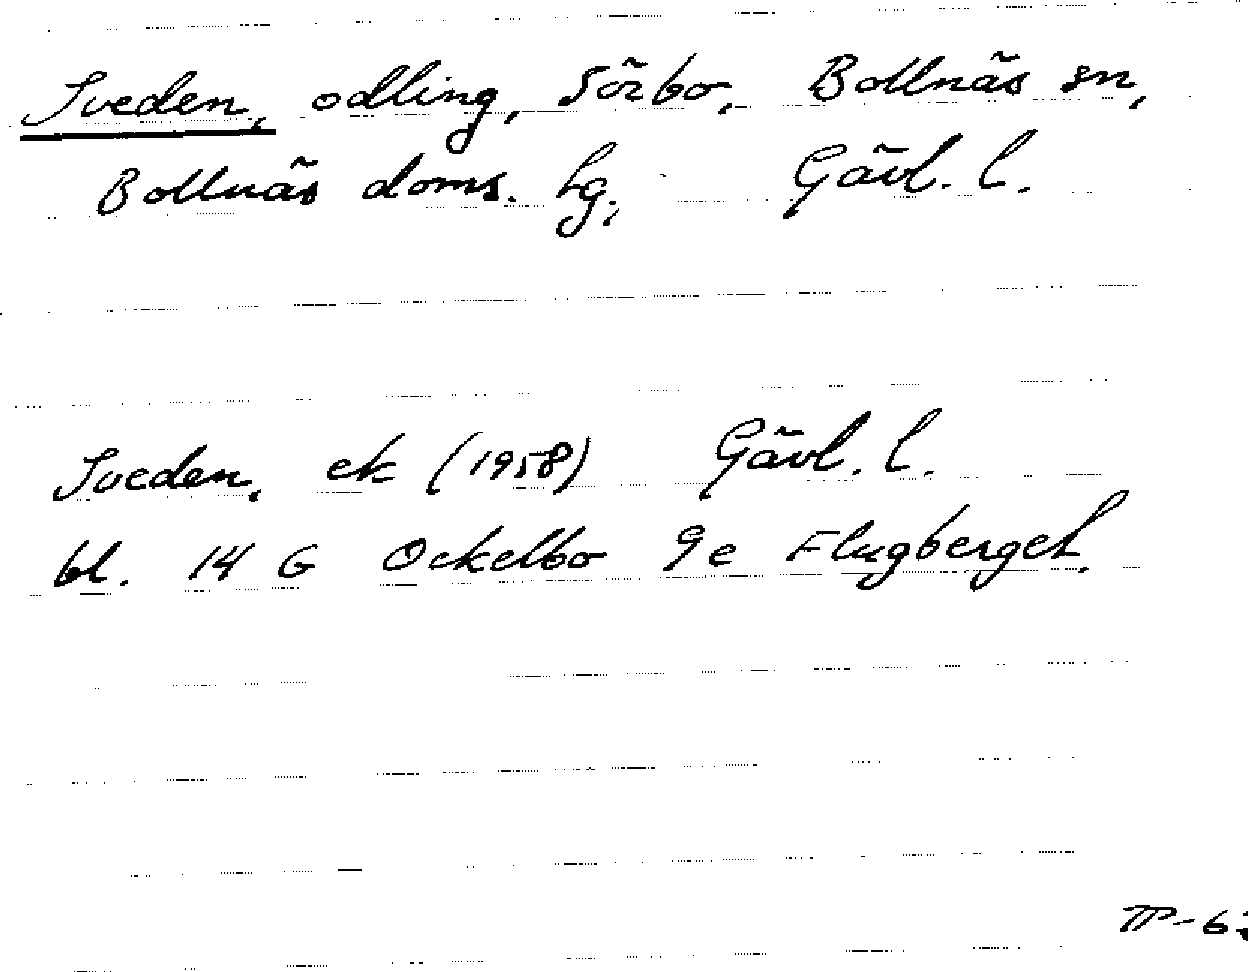 Sveden, odling, Sörbo, Bollnäs sn,
Bollnäs doms. hg, Gävl. l.
Sveden. ek (1958) Gävl. l.
bl. 14 G Ockelbo 9e Flugberget.